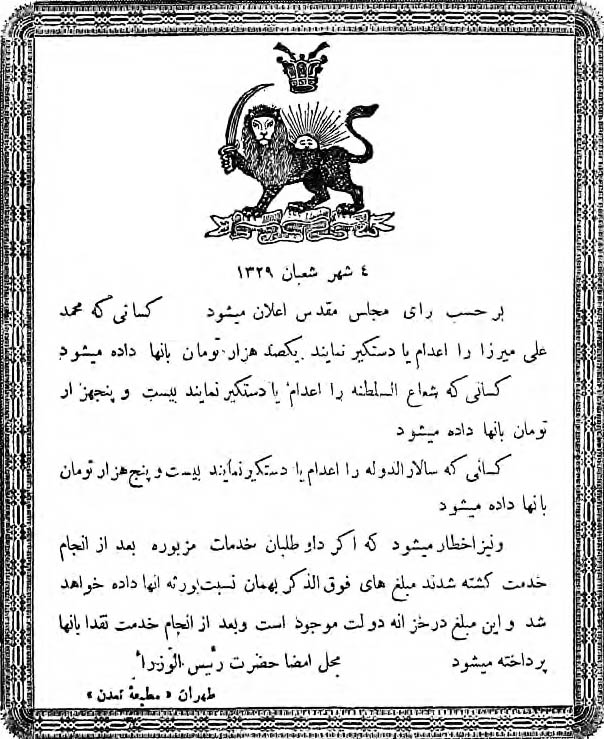 ٤ شهر شعبان ١٣٢٩
بر حسب رای مجلس مقدس اعلان میشود کسانی که محمد
علی میرزا را اعدام یا دستگیر نمایند یکصد هزار تومان بانها داده میشود
کسانی که شعاع السلطنه را اعدام یا دستگیر نمایند بیست و پنجهزار
تومان بانها داده میشود
کسانی که سالار الدوله را اعدام یا دستگیر نمایند بیست و پنج هزار تومان
بانها داده میشود
ونیز اخطار میشود که اکر داو طلبان خدمات مزبوره بعد از انجام
خدمت کشته شدند مبلغ های فوق الذکر بهمان نسبت بورثه انها داده خواهد
شد و این مبلغ در خزانه دولت موجود است وبعد از انجام خدمت نقدا بانها
پرداخته میشود محل امضا حضرت رئیس الوزراء
طهران « مطبعهٔ تمدن »